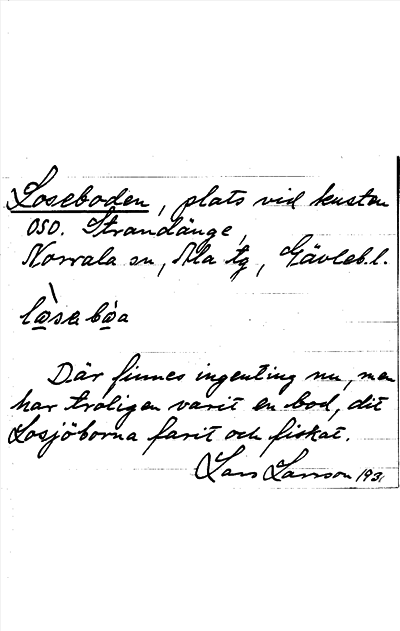 Loseboden, plats vid kusten
OSO. Strandänge,
Norrala sn, Ala tg, Gävleb. l.
lo̲sa bo̲a
Där finnes ingenting nu, men
har troligen varit en bod, dit
Losjöborna farit och fiskat.
Lars Larsson 193